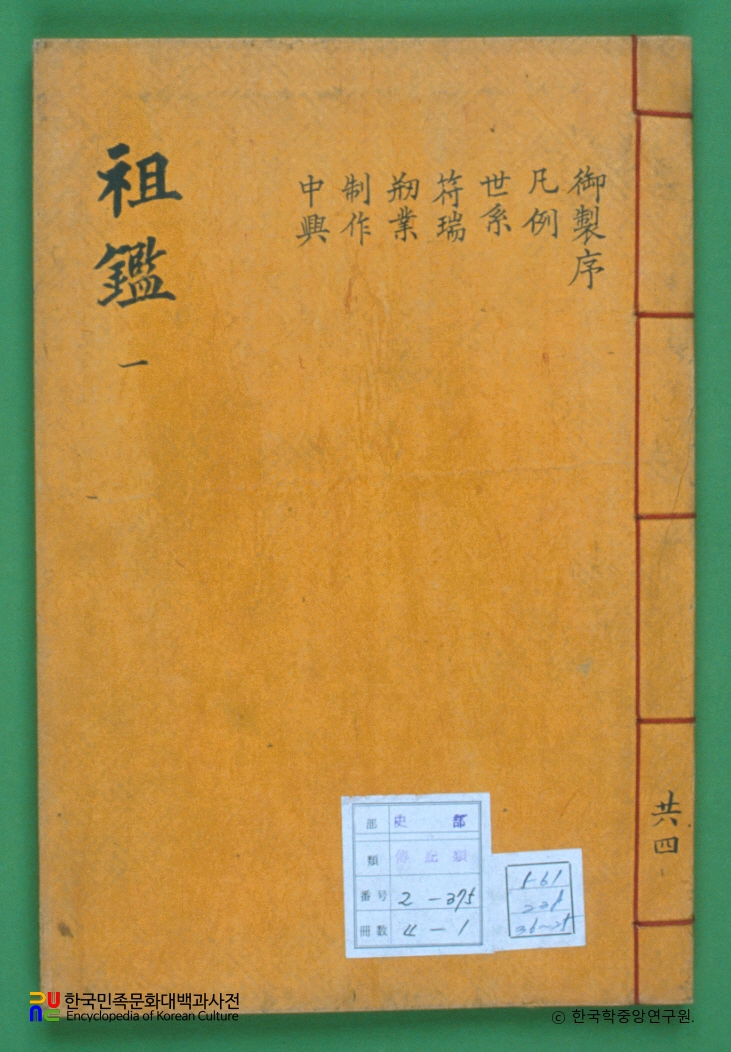 祖鑑 一
御製序
凡例
世系
符瑞
刱業
制作
中興
共四
部 史部
類 傳記類
番号 2-375
冊数 4-1
한국민족문화대백과사전
Encyclopedia of Korean Culture
© 한국학중앙연구원.